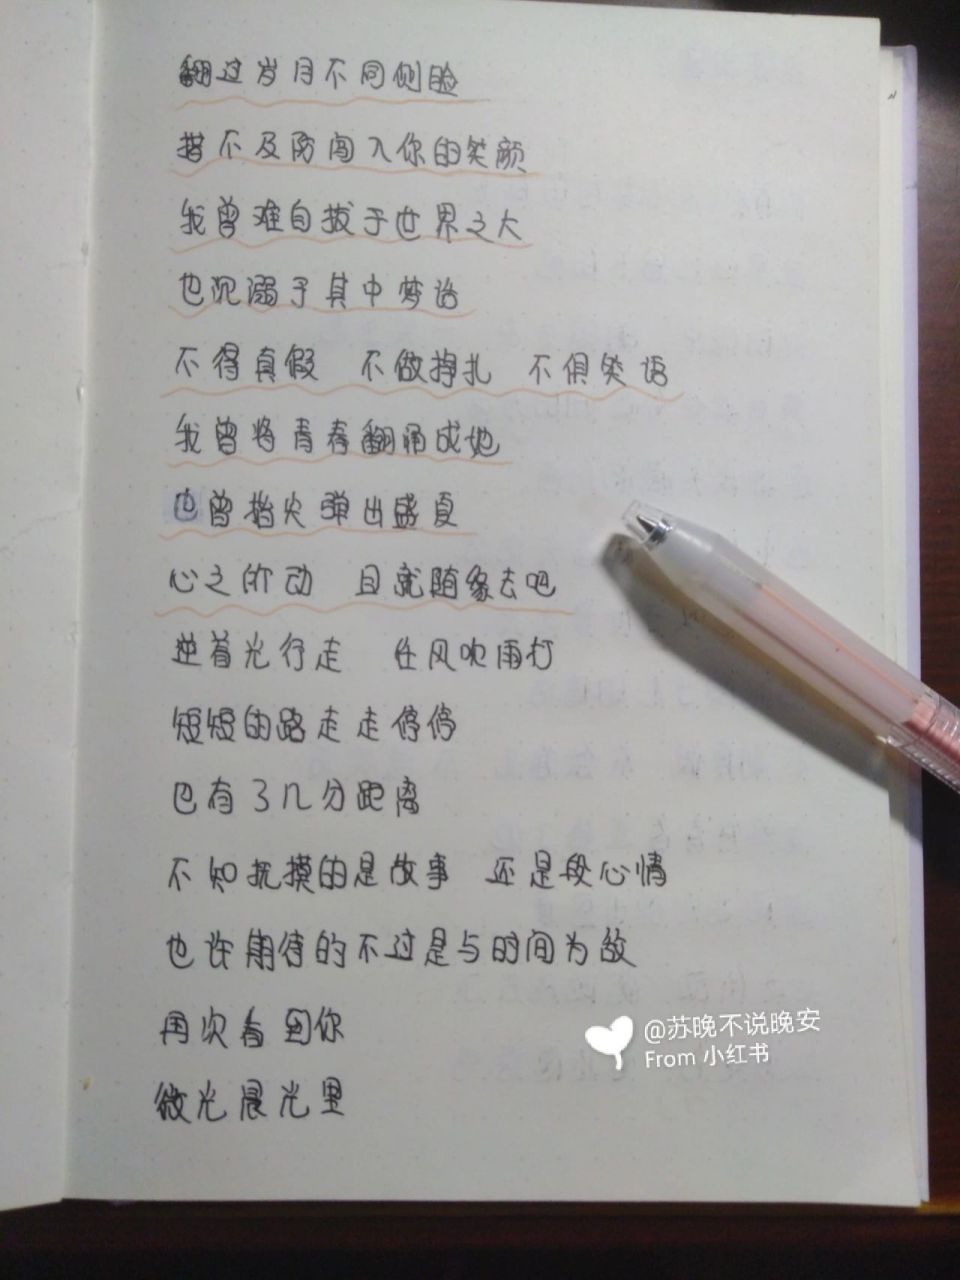 翻过岁月不同侧脸
措不及防闯入你的笑颜
我曾难自拔于世界之大
也沉溺于其中梦话
不得真假 不做挣扎 不惧笑话
我曾将青春翻涌成她
也曾指尖弹出盛夏
心之所动 且就随缘去吧
逆着光行走 任风吹雨打
短短的路走走停停
也有了几分距离
不知抚摸的是故事 还是段心情
也许期待的不过是与时间为敌
再次看到你
微光晨光里
@苏晚不说晚安
From 小红书